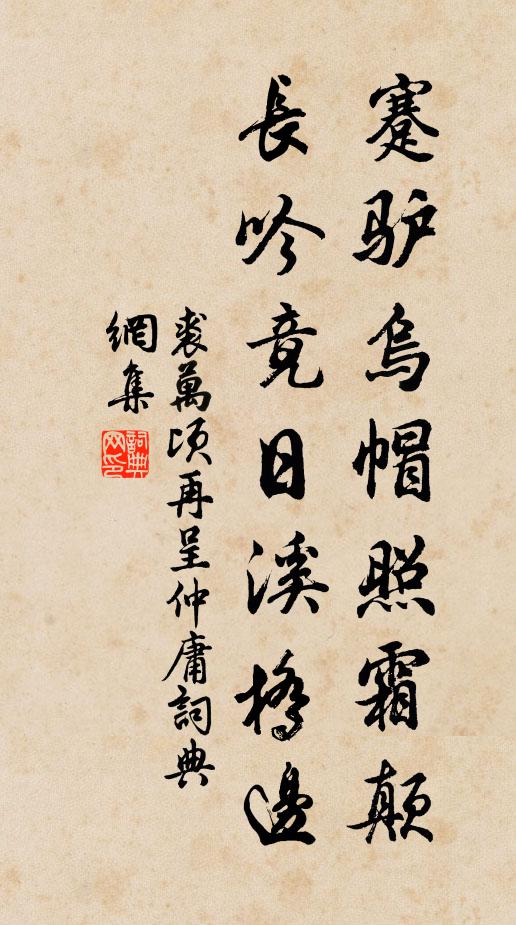 蹇驴烏帽照霜颠
長吟竟日溪橋邊
裘萬頃再呈仲庸詞典
網集
詞典网印